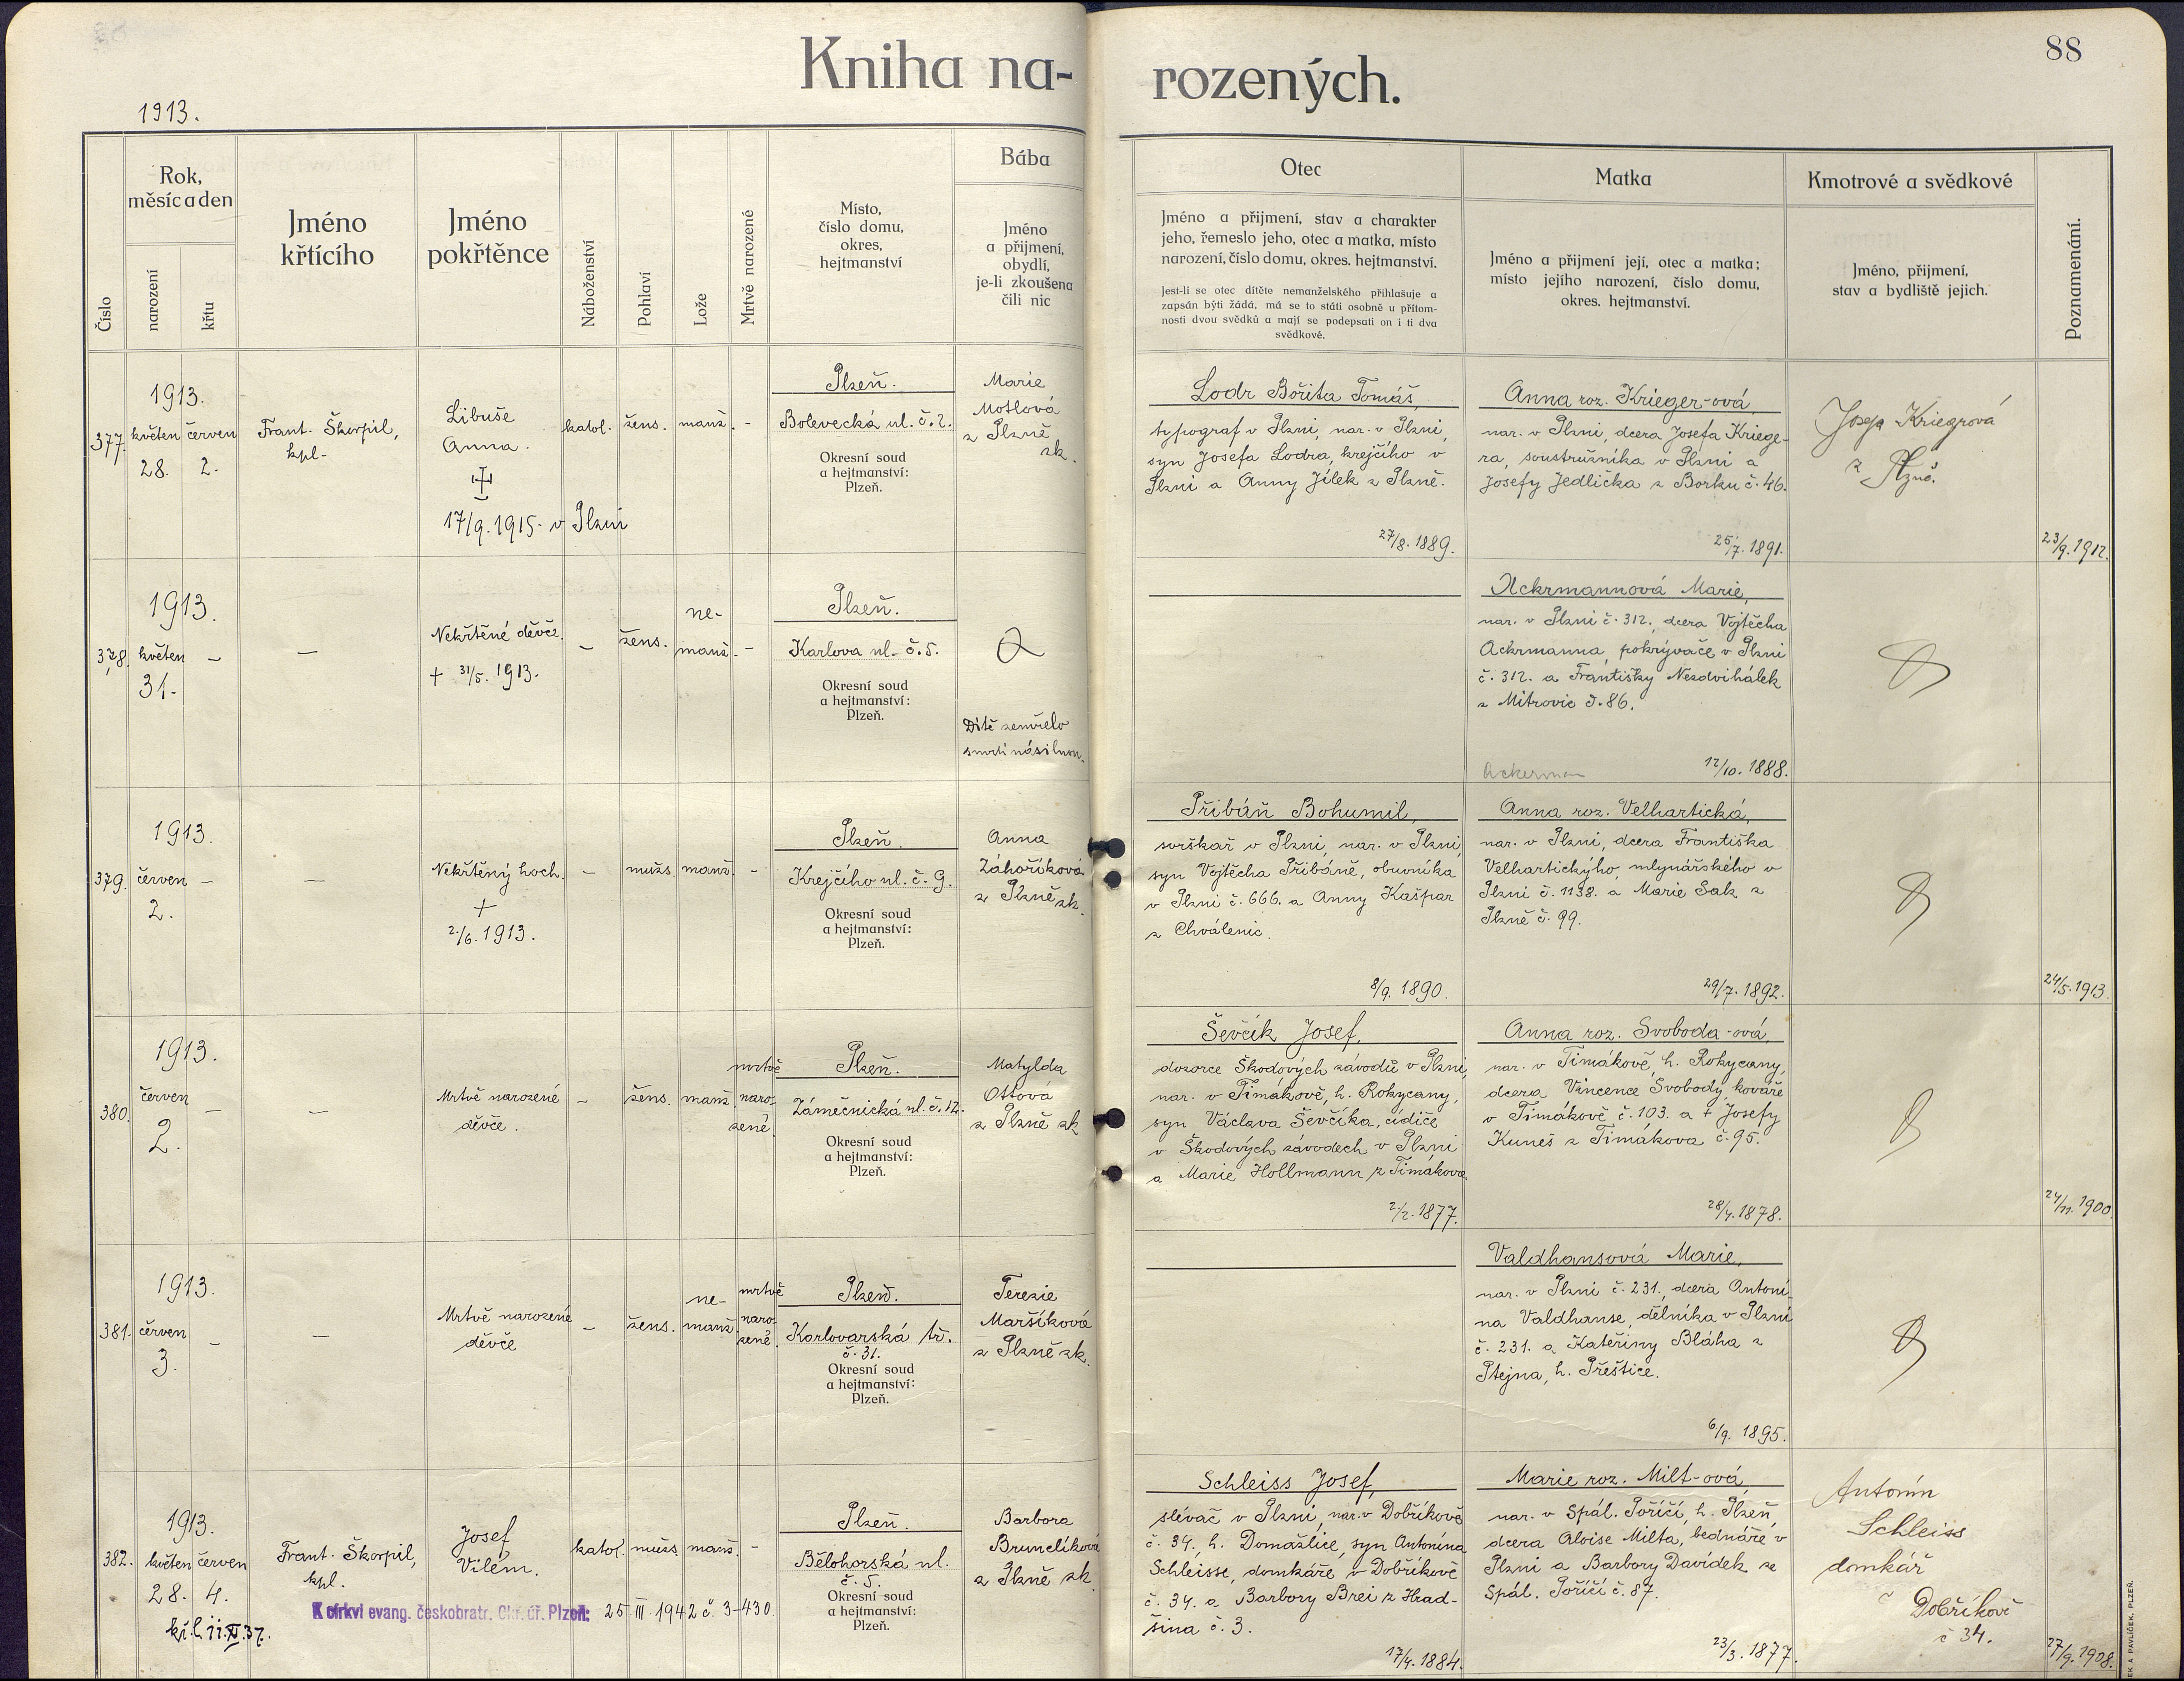 Kniha na-
rozených.
88
1913.
Číslo
Rok,
měsíc a den
narození
křtu
Jméno
křtícího
Jméno
pokřtěnce
Náboženství
Pohlaví
Lože
Mrtvě narozené
Místo,
číslo domu,
okres,
hejtmanství
Bába
Jméno
a přijmení,
obydlí,
je-li zkoušena
čili nic
Otec
Jméno a přijmení, stav a charakter
jeho, řemeslo jeho, otec a matka, místo
narození, číslo domu, okres. hejtmanství.
Jest-li se otec dítěte nemanželského přihlašuje a
zapsán býti žádá, má se to státi osobně u přítom-
nosti dvou svědků a mají se podepsati on i ti dva
svědkové.
Matka
Jméno a přijmení její, otec a matka;
místo jejího narození, číslo domu,
okres. hejtmanství.
Kmotrové a svědkové
Jméno, přijmení,
stav a bydliště jejich.
Poznamenání.
377.
1913.
květen
28.
červen
2.
Frant. Škorpil,
kpl.
Libuše
Anna.
17/9. 1915. v Plzni
katol.
žens.
manž.
-
Plzeň.
Bolevecká ul. č. 2.
Okresní soud
a hejtmanství:
Plzeň.
Marie
Motlová
z Plzně
zk.
Lodr Bořita Tomáš,
typograf v Plzni, nar. v Plzni,
syn Josefa Lodra, krejčího v
Plzni a Anny Jílek z Plzně.
27/8. 1889.
Anna roz. Krieger-ová,
nar. v Plzni, dcera Josefa Kriege-
ra, soustružníka v Plzni a
Josefy Jedlička z Borku č. 46.
25/7. 1891.
Josefa Kriegrová
z Plzně.
23/9. 1912.
378.
1913.
květen
31.
-
-
Nekřtěné děvče.
+ 31/5. 1913.
-
žens.
ne-
manž.
-
Plzeň.
Karlova ul. č. 5.
Okresní soud
a hejtmanství:
Plzeň.
Dítě zemřelo
smrtí násilnou.
Ackrmannová Marie,
nar. v Plzni č. 312., dcera Vojtěcha
Ackrmanna, pokrývače v Plzni
č. 312. a Františky Nezdvihálek
z Mitrovic č. 86.
Ackerman
12/10. 1888.
379.
1913.
červen
2.
-
-
Nekřtěný hoch.
+
2./6. 1913.
-
mužs.
manž.
-
Plzeň.
Krejčího ul. č. 9.
Okresní soud
a hejtmanství:
Plzeň.
Anna
Záhoříková
z Plzně zk.
Přibáň Bohumil,
soškař v Plzni, nar. v Plzni,
syn Vojtěcha Přibáně, obuvníka
v Plzni č. 666. a Anny Kašpar
z Chválenic.
8/9. 1890.
Anna roz. Velhartická,
nar. v Plzni, dcera Františka
Velhartickýho, mlynářského v
Plzni č. 1138. a Marie Sak z
Plzně č. 99.
29/7. 1892.
24/5. 1913.
380.
1913.
červen
2.
-
-
Mrtvě narozené
děvče.
-
žens.
manž.
mrtvě
naro-
zené.
Plzeň.
Zámečnická ul. č. 12.
Okresní soud
a hejtmanství:
Plzeň.
Matylda
Ottová
z Plzně zk
Ševčík Josef,
dozorce Škodových závodů v Plzni,
nar. v Timákově, h. Rokycany,
syn Václava Ševčíka, cídiče
v Škodových závodech v Plzni
a Marie Hollmann z Timákova.
2/2. 1877.
Anna roz. Svoboda-ová,
nar. v Timákově, h. Rokycany,
dcera Vincence Svobody, kováře
v Timákově č. 103. a + Josefy
Kuneš z Timákova č. 95.
28/4. 1878.
24/11. 1900.
381.
1913.
červen
3.
-
-
Mrtvě narozené
děvče
-
žens.
ne-
manž.
mrtvě
naro-
zené.
Plzeň.
Karlovarská tř.
č. 31.
Okresní soud
a hejtmanství:
Plzeň.
Terezie
Maršíková
z Plzně zk.
Valdhansová Marie,
nar. v Plzni č. 231., dcera Antoní-
na Valdhanse, dělníka v Plzni
č. 231. a Kateřiny Bláha z
Ptejna, h. Přeštice.
6/9. 1895.
382.
1913.
květen
28.
červen
4.
Frant. Škorpil,
kpl.
Josef
Vilém.
katol.
mužs.
manž.
-
Plzeň.
Bělohorská ul.
č. 5.
Okresní soud
a hejtmanství:
Plzeň.
Barbora
Brunclíková
z Plzně zk.
K církvi evang. českobratr. Okr. úř. Plzeň: 25 III 1942 č. 3-430.
Schleiss Josef,
slévač v Plzni, nar. v Dobříkově
č. 34., h. Domažlice, syn Antonína
Schleisse, domkáře v Dobříkově
č. 34. a Barbory Brei z Hrad-
šina č. 3.
17/4. 1884.
Marie roz. Milt-ová,
nar. v Spál. Poříčí, h. Plzeň,
dcera Aloise Milta, bednáře v
Plzni a Barbory Davídek ze
Spál. Poříčí č. 87.
23/3. 1877.
Antonín
Schleiss
domkář
Dobříkově
č 34.
27/9. 1908.